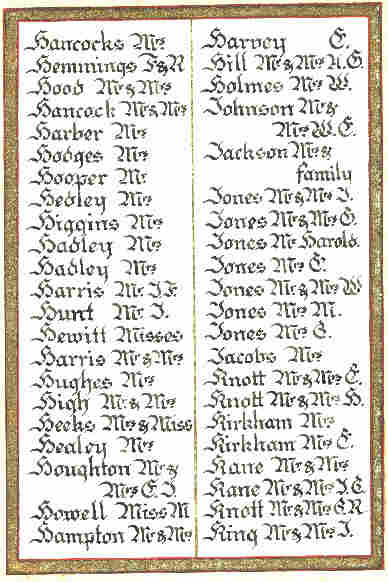 Hancocks Mrs
Hemmings F & R
Hood Mr & Mrs
Hancock Mr & Mrs
Harber Mrs
Hodges Mrs
Hooper Mr
Hedley Mrs
Higgins Mrs
Hadley Mrs
Hadley Mrs
Harris Mr J.F.
Hunt Mr J.
Hewitt Misses
Harris Mr & Mrs
Hughes Mrs
High Mr & Mrs
Heeks Mrs & Miss
Healey Mrs
Houghton Mr &
Mrs E. J.
Howell Miss M
Hampton Mr & Mrs
Harvey E.
Hill Mr & Mrs A.G.
Holmes Mrs W.
Johnson Mr &
Mrs W. E.
Jackson Mrs &
family
Jones Mr & Mrs J.
Jones Mr & Mrs G.
Jones Mr Harold.
Jones Mrs E.
Jones Mr & Mrs W
Jones Mrs M.
Jones Mrs S.
Jacobs Mrs
Knott Mr & Mrs E.
Knott Mr & Mrs H.
Kirkham Mrs
Kirkham Mrs E.
Kane Mr & Mrs
Kane Mr & Mrs J.C.
Knott Mr & Mrs G.R
King Mr & Mrs J.